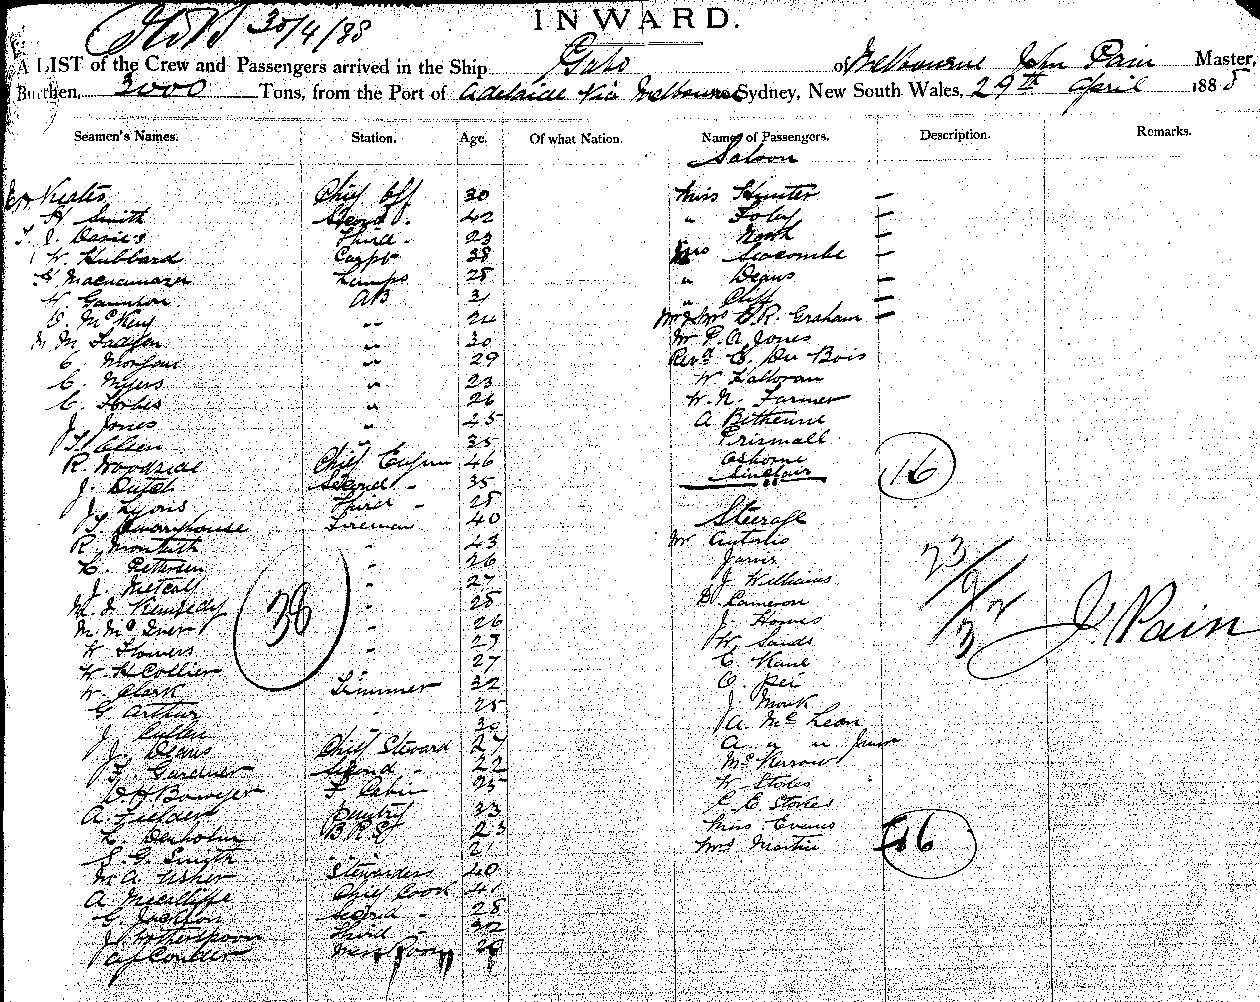 30/4/88
INWARD.
A LIST of the Crew and Passengers arrived in the Ship Gabo of Melbourne John Pain Master,
Burthen, 3000 Tons, from the Port of Adelaide via Melbourne Sydney, New South Wales, 29th April 1885
Seamen's Names. Station. Age. Of what Nation. Names of Passengers. Description. Remarks.
Saloon
Keates Chief Off 30 Miss Hunter —
H Smith Second . 42 " Foley —
T. J. Davies Third - 23 " North —
W. Hubbard Carptr 38 Mrs Seacombe —
Macnamara Lamps 28 " Deans —
W. AB 31 " Cliff —
McKay " 24 Mr & Mrs C. R. Graham —
M. Fadyen " 30 Mr P. A Jones
C. Morgan " 29 Revd E. Du Bois
C. Myers " 23 W Halloran
C. Forbes " 26 W. N. Farmer
J Jones " 45 A
T. Olsen " 35 Prismall
R. Woodside Chief Engineer 46 Osborne
J. Dutch Second - 35 Sinclair
16
J. Lyons Third - 28
T Fireman 40 Steerage
R. Monteith " 43 Mr
Petersen " 26 Jarvis
J. Metcalf " 27 J Williams
Kennedy " 28 D. Cameron
M. McIver " 26 J. Howes
W Flowers " 29 W. Sands
W. H Collier " 27 C Kane
38
W. Clark Trimmer 32
G Arthur " 25 J. Monk
J. Cullen 30 A. McLean
J. Deans Chief Steward 27 A. " " Junr
Gardner Second - 22 McKerrow
Bowyer F Cabin 25 W. Stokes
A. Fielder Pantry 33 C. C. Stokes
Denholm B. R. S 23 Miss Evans
S. G. Smyth " 21 Mrs Martin
16
M. A. Usher Stewardess 40
A Chief Cook 41
G Jackson Second - 28
J Wotherspoon Third - 32
Coulter Mess Room 28
J. Pain